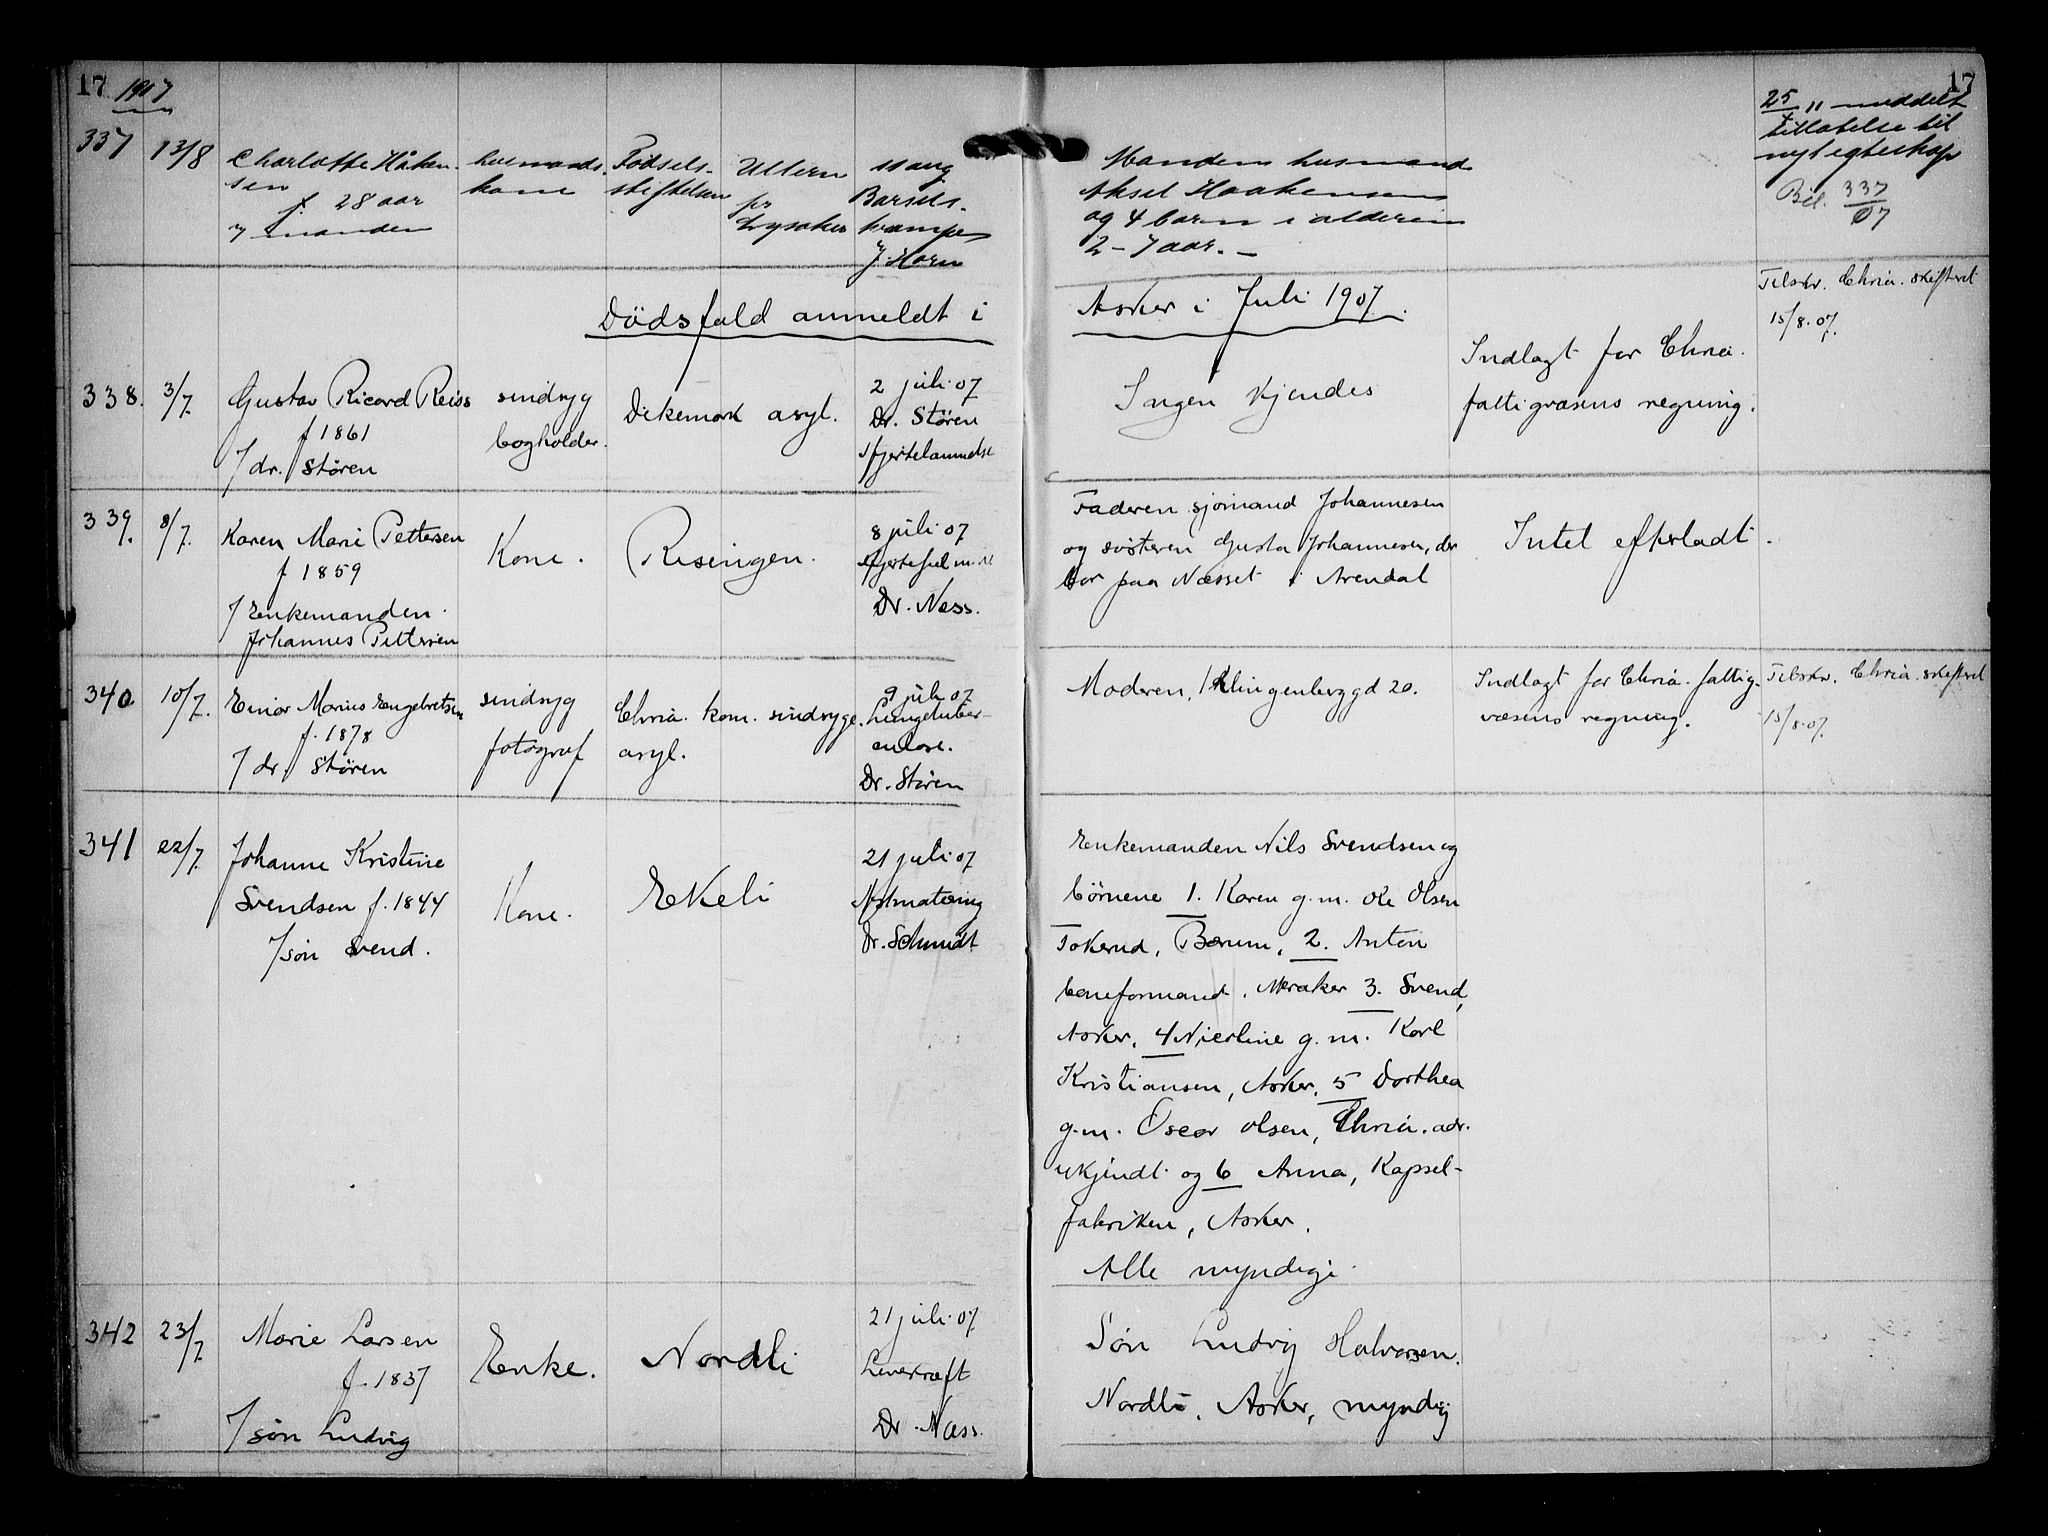 17 1907
337
13/8
Charlotte Håken-
sen
f. 28 aar
manden
husmands-
kone
Fødsels-
stiftelsen
Ullern
pr
Lysaker
11 aug
Barsels-
krampe
J. Horn
Manden husmand
Aksel Haakensen
og 4 barn i alderen
2-7 aar. –
17
25 " meddelt
tillatelse til
nyt egteskap
Bil. 337/07
Dödsfald anmeldt i Asker i Juli 1907.
338.
3/7.
Gustav Ricard Reiss
f 1861
/ dr. Stören
sindsyg
bogholder.
Dikemark asyl.
2 juli 07
Dr. Stören
Hjertelammelse
Ingen kjendes
Indlagt for Chria.
fattigvæsens regning.
Tilskr. Chria. skifteret
15/8.07.
339.
8/7.
Karen Marie Pettersen
f 1859
/ Enkemanden
Johannes Pettersen
Kone.
Risingen.
8 juli 07
Hjertefeil m.
Dr. Næss.
Faderen sjömand Johannesen
og søsteren Gusta Johannesen, der
bor paa Næsset i Arendal
Intet efterladt.
340
10/7.
Einar Marius Engebretsen
f. 1878
/ dr. Stören
sindsyg
fotograf
Chria. kom. sindsyge
asyl.
9 juli 07
Lungetuber-
culose.
Dr. Stören
Moderen, Klingenberggd 20.
Indlagt for Chria. fattig-
væsens regning.
Tilskr. Chria. skifteret
15/8.07.
341
22/7.
Johanne Kristine
Svendsen f. 1844
/ sön Svend.
Kone.
Ekeli
21 juli 07
Dr. Schmidt
Enkemanden Nils Svendsen og
börnene 1. Karen g.m. Ole Olsen
Tokerud, Bærum, 2. Anton
baneformand, Meraker 3. Svend,
Asker, 4 Nicoline g.m. Karl
Kristiansen, Asker, 5 Dorthea
g.m. Oscar Olsen, Chria. adr.
ukjendt og 6 Anna, Kapsel-
fabriken, Asker.
Alle myndige
342
23/7
Marie Larsen
f. 1837
/ sön Ludvig
Enke.
Nordli
21 juli 07
Leverkræft
Dr. Næss.
Sön Ludvig Halvorsen.
Nordli, Asker, myndig